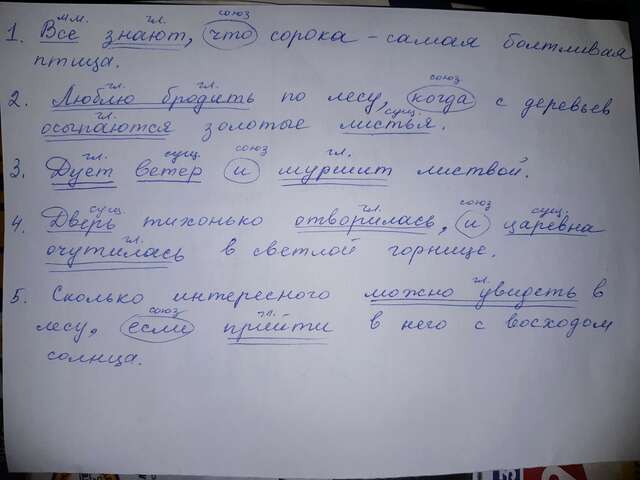 мм. гл. союз
1. Все знают, что сорока - самая болтливая
птица.
гл. гл. союз
2. Люблю бродить по лесу, когда с деревьев
гл. сущ.
осыпаются золотые листья.
гл. сущ. союз гл.
3. Дует ветер и шуршит листвой.
сущ. гл. союз сущ.
4. Дверь тихонько отворилась, и царевна
гл.
очутилась в светлой горнице.
гл.
5. Сколько интересного можно увидеть в
союз гл.
лесу, если прийти в него с восходом
солнца.